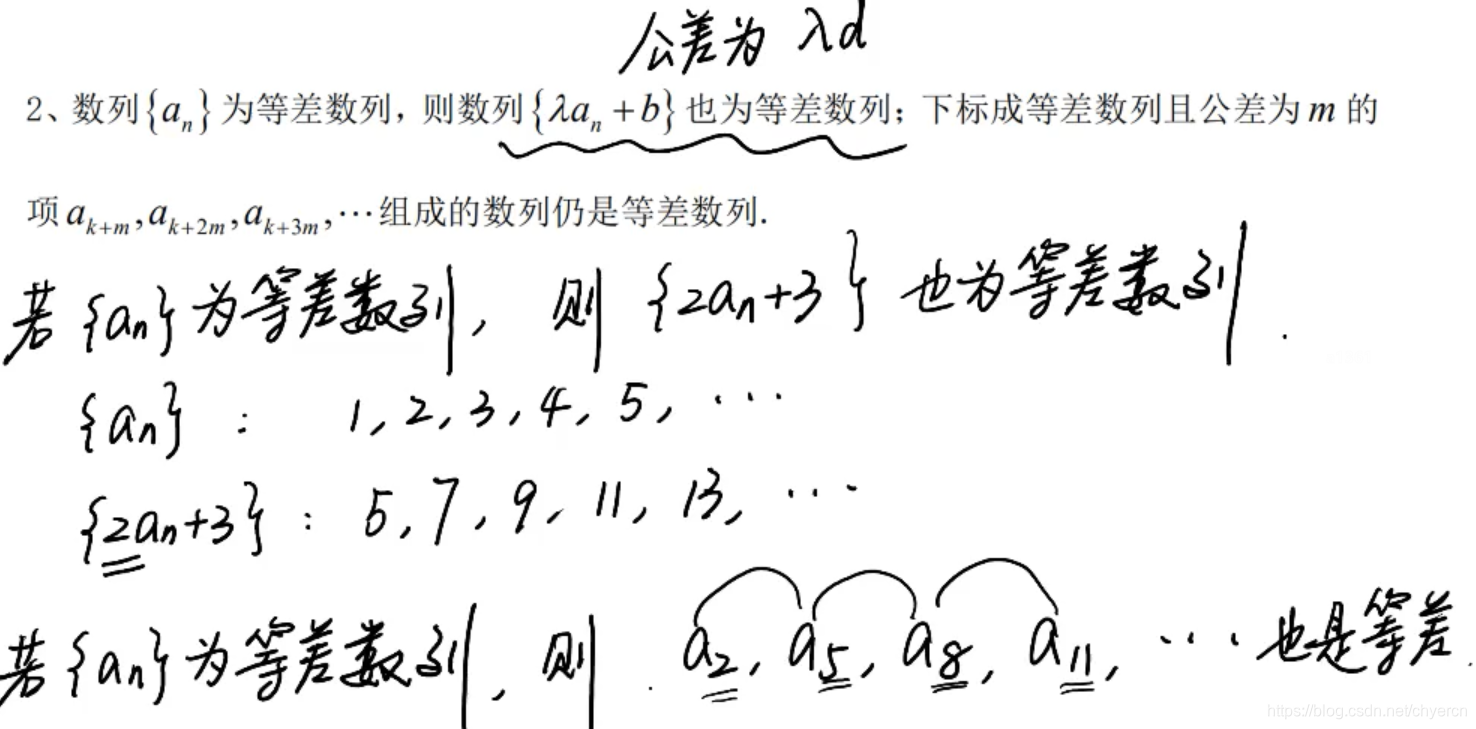 公差为 λd
2、数列{aₙ}为等差数列，则数列{λaₙ+b}也为等差数列；下标成等差数列且公差为m的
项aₖ₊ₘ,aₖ₊₂ₘ,aₖ₊₃ₘ,⋯组成的数列仍是等差数列.
若{aₙ}为等差数列，则{2aₙ+3}也为等差数列.
{aₙ}： 1, 2, 3, 4, 5, ⋯
{2aₙ+3}： 5, 7, 9, 11, 13, ⋯
若{aₙ}为等差数列，则 a₂, a₅, a₈, a₁₁, ⋯ 也是等差.
https://blog.csdn.net/chyercn